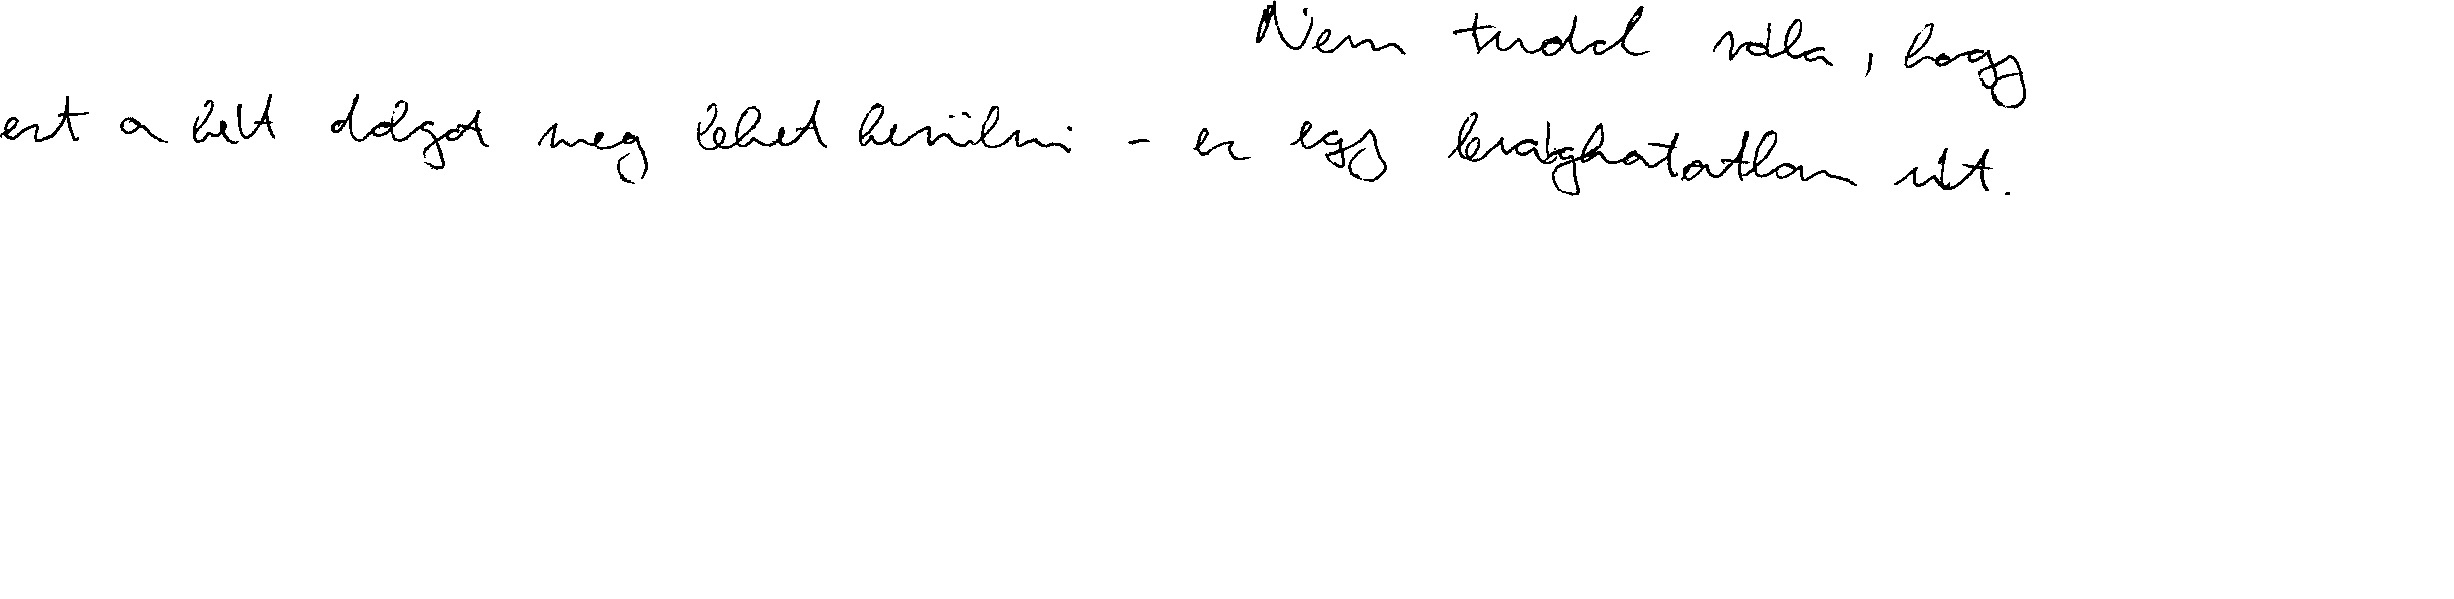 Nem tudod róla, hogy
ezt a két dolgot meg lehet kerülni - ez egy levághatatlan út.